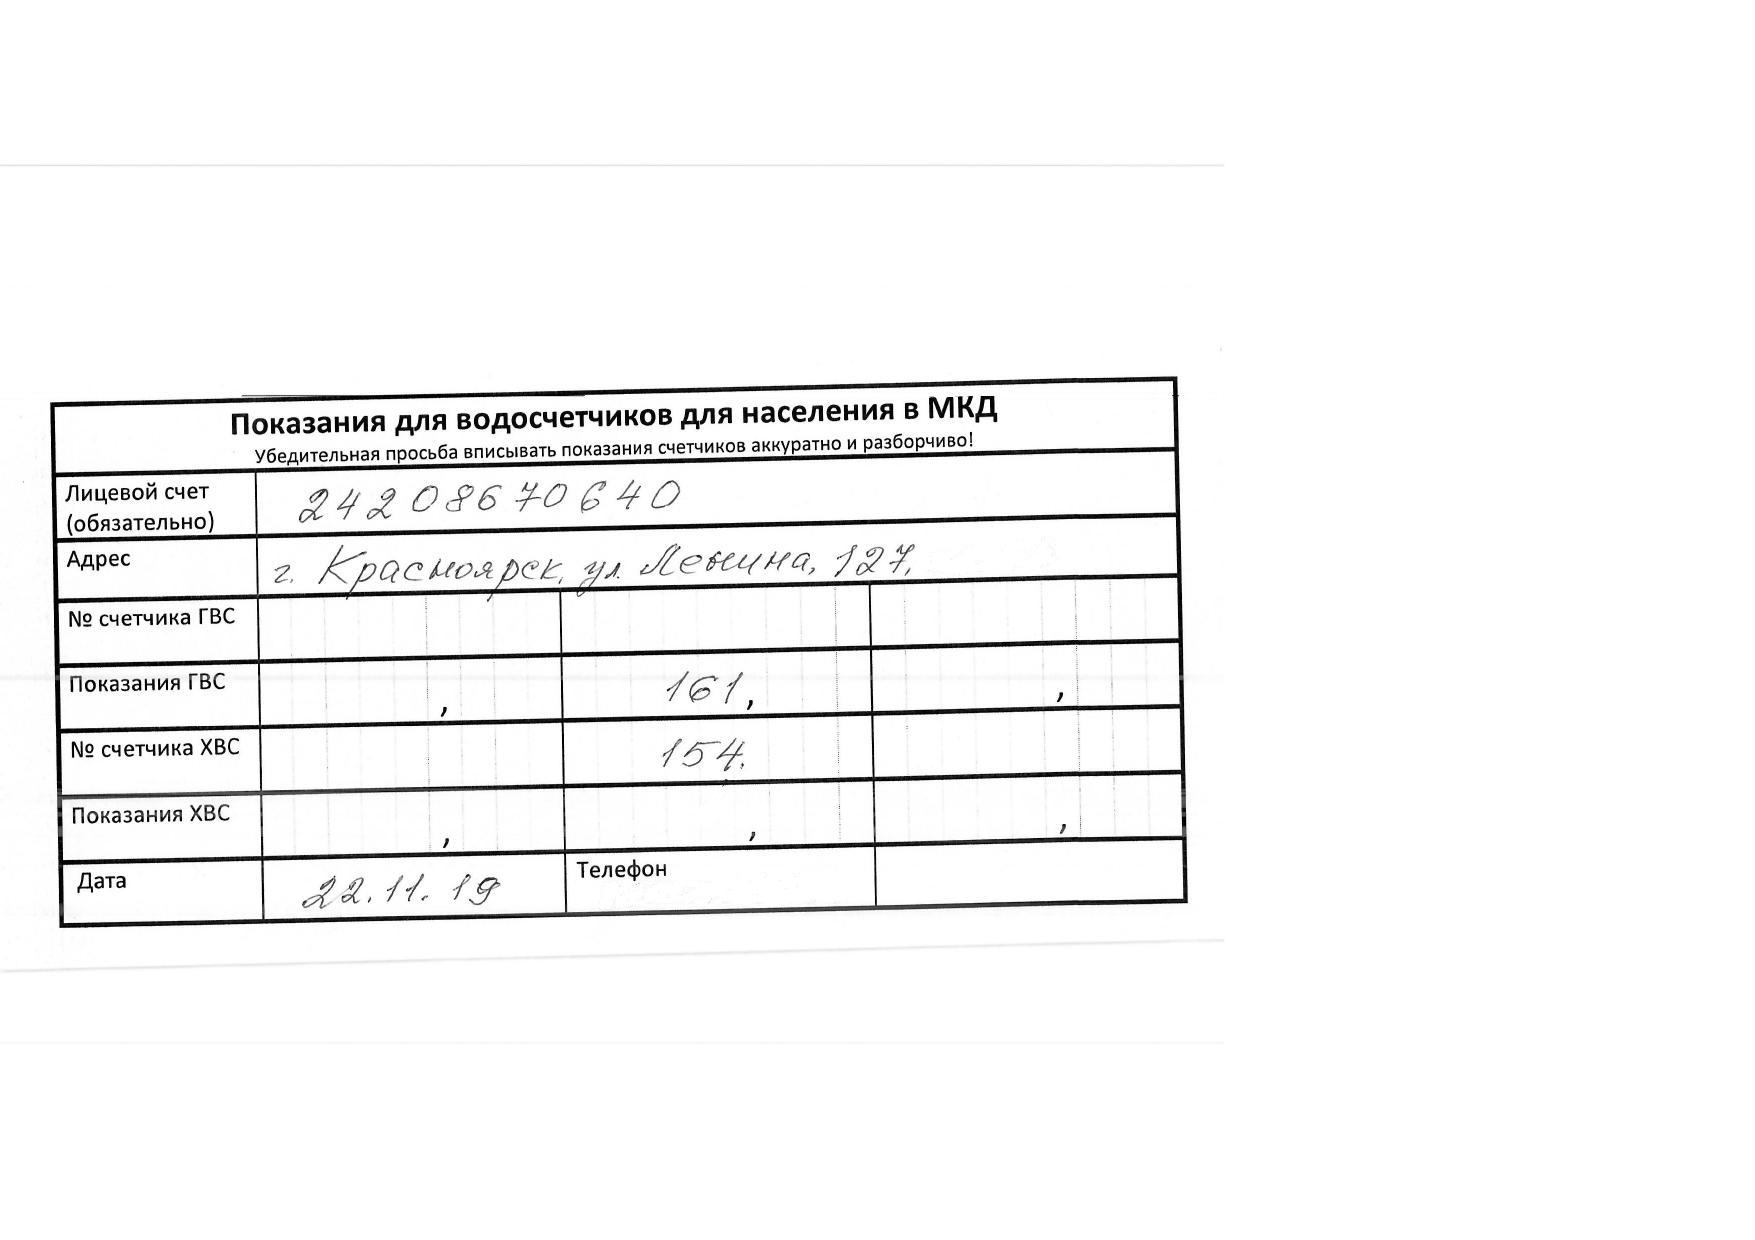 Показания для водосчетчиков для населения в МКД
Убедительная просьба вписывать показания счетчиков аккуратно и разборчиво!
Лицевой счет
(обязательно)
24208670640
Адрес
г. Красноярск, ул. Ленина, 127,
№ счетчика ГВС
Показания ГВС , 161, ,
№ счетчика ХВС 154.
Показания ХВС , , ,
Дата 22.11.19 Телефон